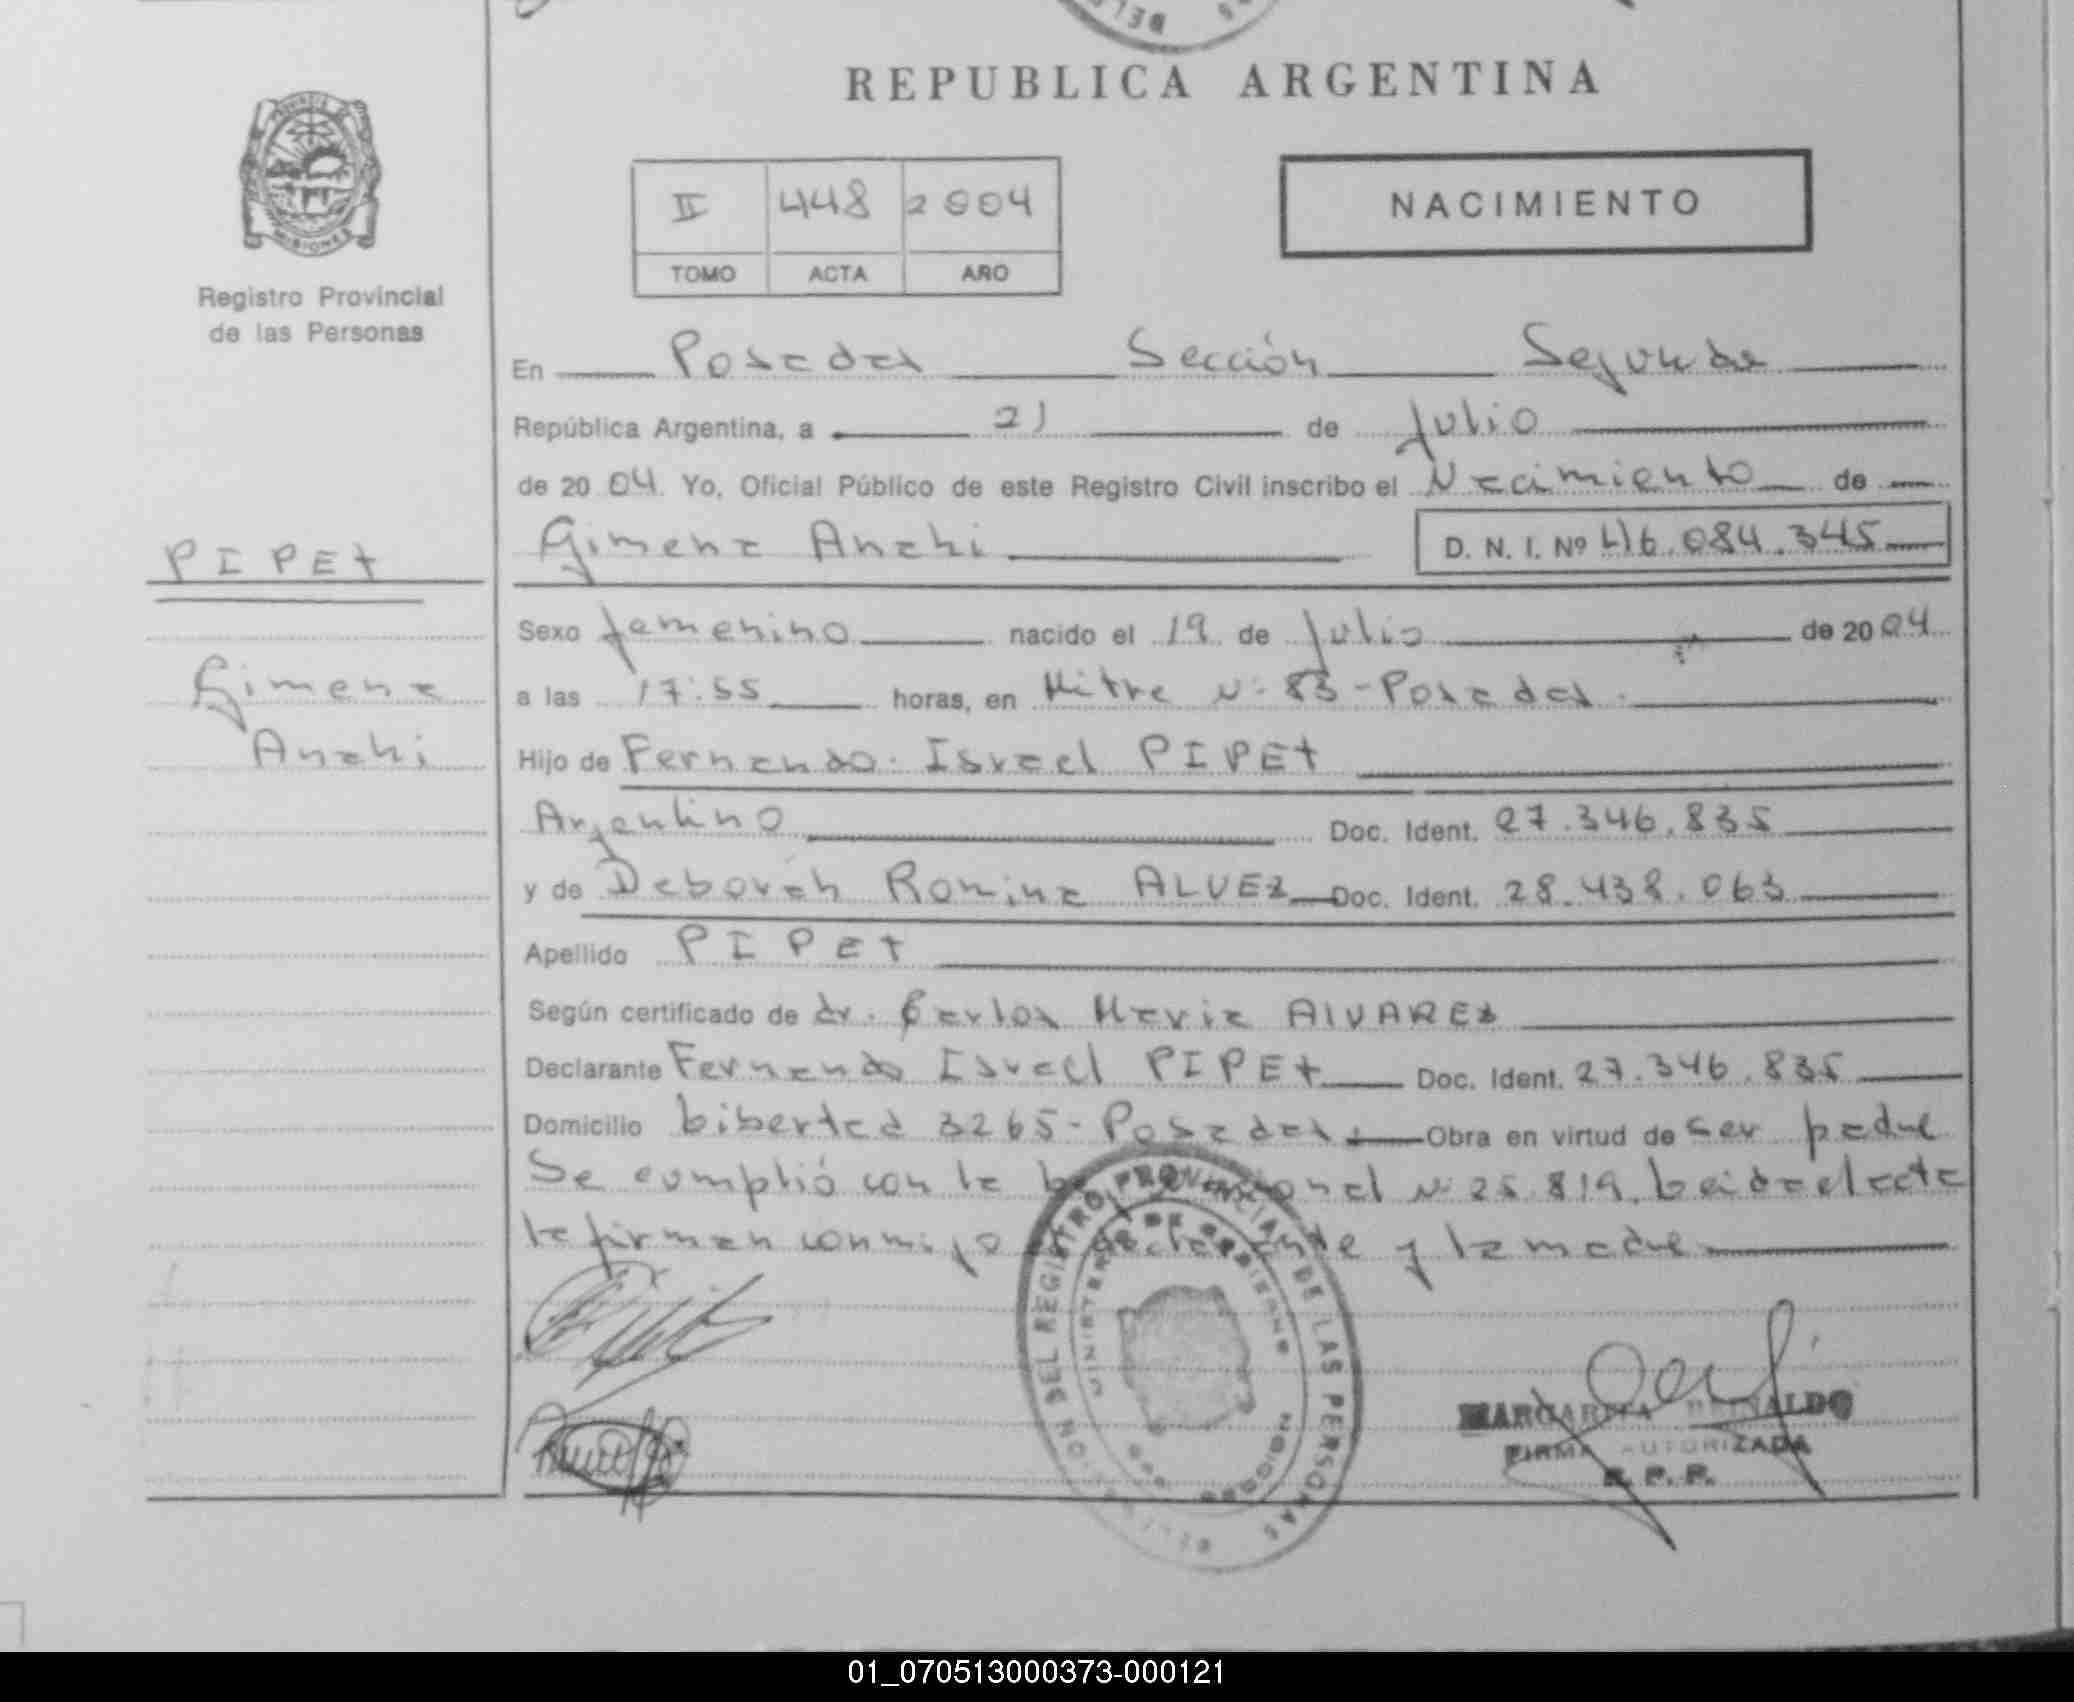 REPUBLICA ARGENTINA
PROVINCIA DE MISIONES
Registro Provincial
de las Personas
II 448 2004
TOMO ACTA AÑO
NACIMIENTO
En Posadas Sección Segunda
República Argentina, a 21 de Julio
de 2004. Yo, Oficial Público de este Registro Civil inscribo el Nacimiento de
PIPET
Gimena Anahi D. N. I. Nº 46.084.345
Sexo femenino nacido el 19 de Julio de 2004
Gimena
a las 17:55 horas, en Mitre Nº 83 - Posadas.
Anahi
Hijo de Fernando Israel PIPET
Argentino Doc. Ident. 27.346.835
y de Deborah Romina ALVEZ Doc. Ident. 28.438.063
Apellido PIPET
Según certificado de dr. Carlos Maria ALVAREZ
Declarante Fernando Israel PIPET Doc. Ident. 27.346.835
Domicilio Libertad 3265 - Posadas. Obra en virtud de ser padre
Se cumplió con la Ley Nacional Nº 25.819. Leida el acta
la firman conmigo declarante y la madre
DEL REGISTRO PROVINCIAL DE LAS PERSONAS
MINISTERIO DE GOBIERNO
MARGARITA REINALDO
FIRMA AUTORIZADA
R. P. P.
01_070513000373-000121